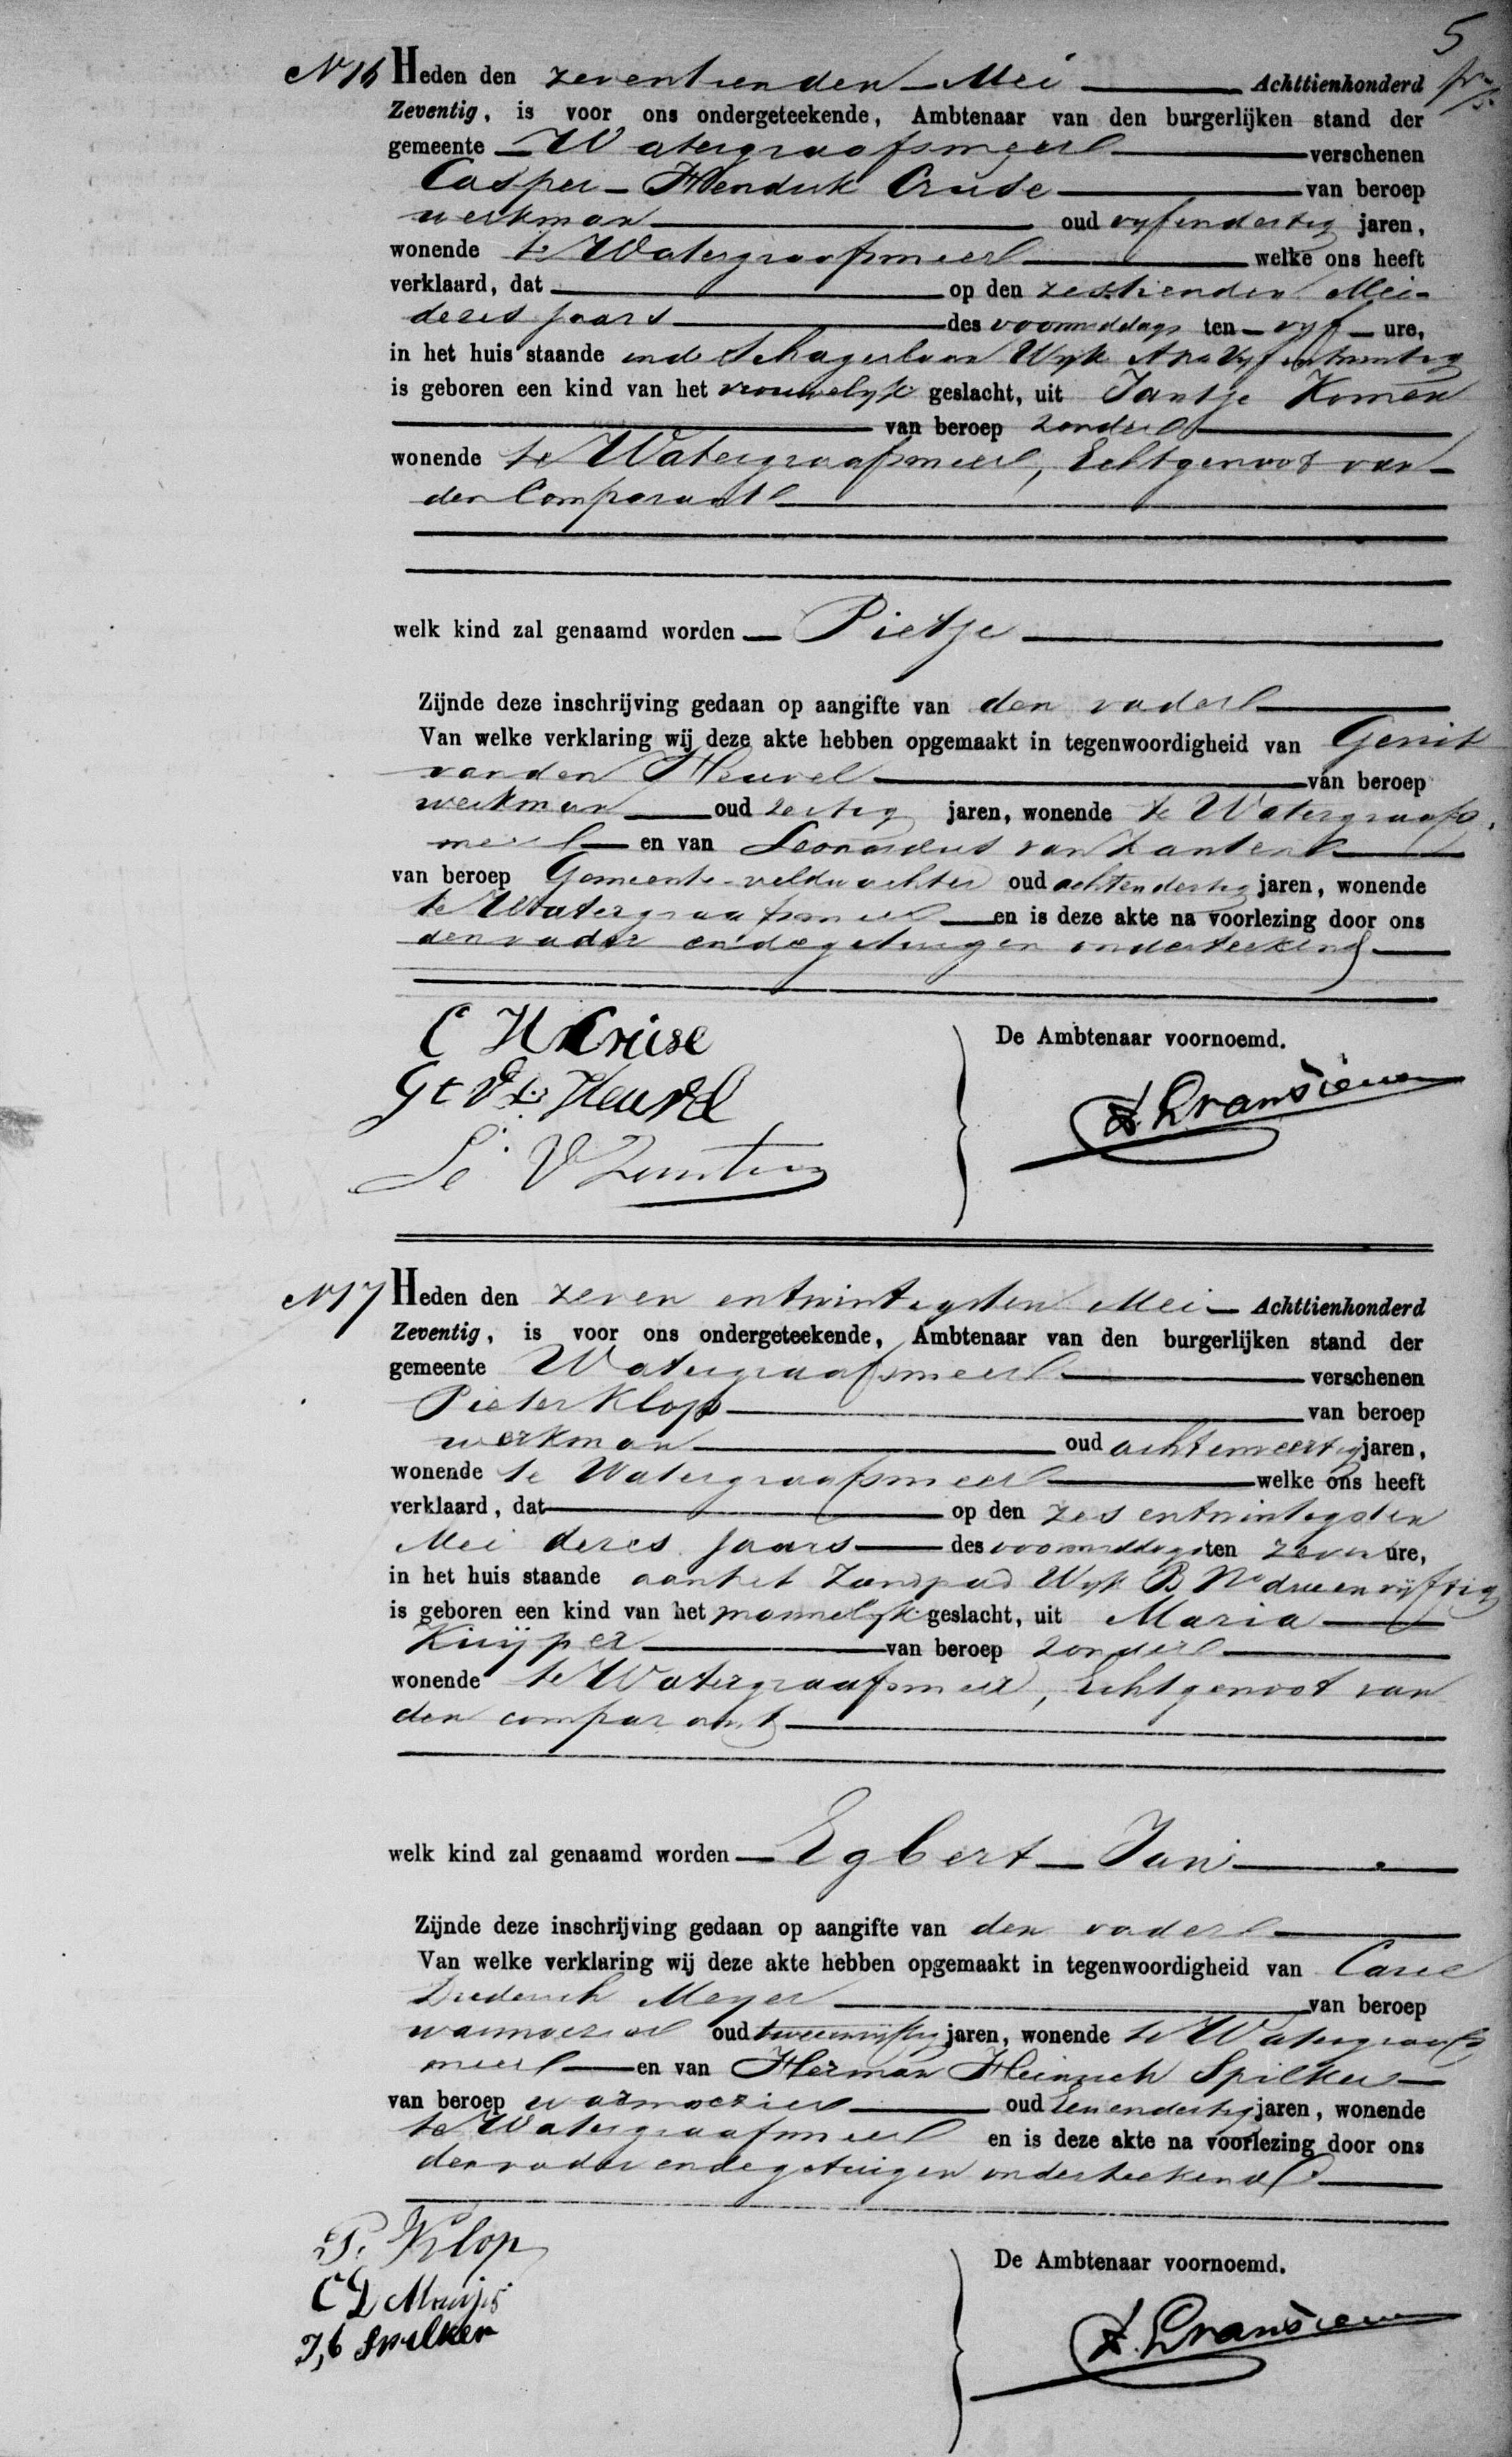 5
N 16 Heden den zeventienden Mei Achttienhonderd
Zeventig, is voor ons ondergeteekende, Ambtenaar van den burgerlijken stand der
gemeente Watergraafsmeer verschenen
Casper Hendrik Cruse van beroep
werkman oud vyfendertig jaren,
wonende te Watergraafsmeer welke ons heeft
verklaard, dat op den zestienden Mei
dezes jaars des voormiddags ten vyf ure,
in het huis staande in de Schagerlaan Wyk A No Vyf entwintig
is geboren een kind van het vrouwelyk geslacht, uit Jantje Komen
van beroep zonder
wonende te Watergraafsmeer, Echtgenoot van
den Comparant
welk kind zal genaamd worden Pietje
Zijnde deze inschrijving gedaan op aangifte van den vader
Van welke verklaring wij deze akte hebben opgemaakt in tegenwoordigheid van Gerrit
van den Heuvel van beroep
werkman oud zestig jaren, wonende te Watergraafs
meer en van Leonardus van Zanten
van beroep Gemeente-veldwachter oud achtendertig jaren, wonende
te Watergraafsmeer en is deze akte na voorlezing door ons
den vader en de getuigen onderteekend
C H Cruse
De Ambtenaar voornoemd.
Gt Vd Heuvel
Le V Zanten
N 17 Heden den zeven entwintigsten Mei Achttienhonderd
Zeventig, is voor ons ondergeteekende, Ambtenaar van den burgerlijken stand der
gemeente Watergraafsmeer verschenen
Pieter Klop van beroep
werkman oud achtenveertig jaren,
wonende te Watergraafsmeer welke ons heeft
verklaard, dat op den zes entwintigsten
Mei dezes jaars des voormiddags ten zeven ure,
in het huis staande aan het Zandpad Wyk B No drieenvyftig
is geboren een kind van het mannelyk geslacht, uit Maria
Kuyper van beroep zonder
wonende te Watergraafsmeer, Echtgenoot van
den comparant
welk kind zal genaamd worden Egbert Jan
Zijnde deze inschrijving gedaan op aangifte van den vader
Van welke verklaring wij deze akte hebben opgemaakt in tegenwoordigheid van Carel
Diederich Meyer van beroep
warmoezier oud tweeenvyftig jaren, wonende te Watergraafs
meer en van Herman Heinrich Spilker
van beroep warmoezier oud eenendertig jaren, wonende
te Watergraafsmeer en is deze akte na voorlezing door ons
den vader en de getuigen onderteekend
P. Klop
De Ambtenaar voornoemd.
C D
Spilker